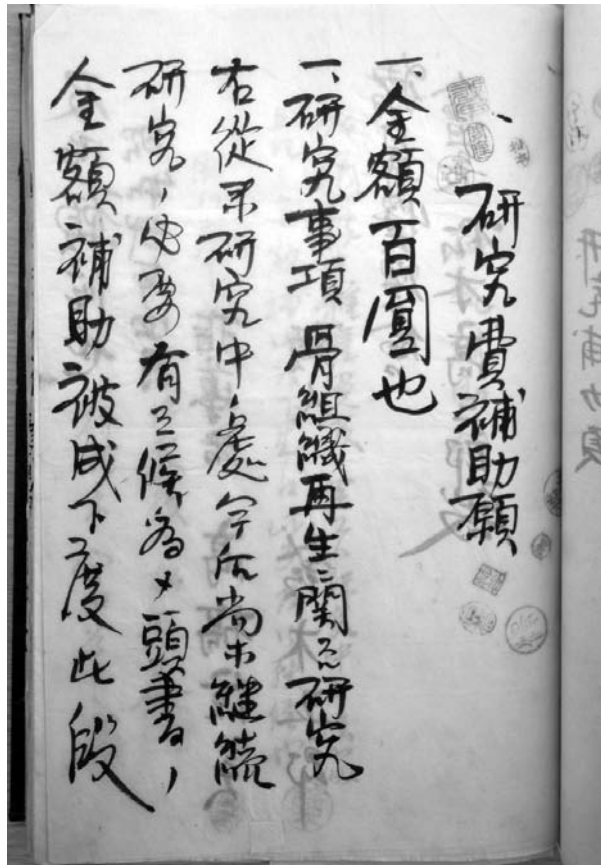 研究費補助願
一、金額百圓也
一、研究事項 骨組織再生ニ関スル研究
右從来研究中ノ處今后尚ホ継続
研究ノ必要有之候為メ頭書ノ
金額補助被成下度此段
研究補助願